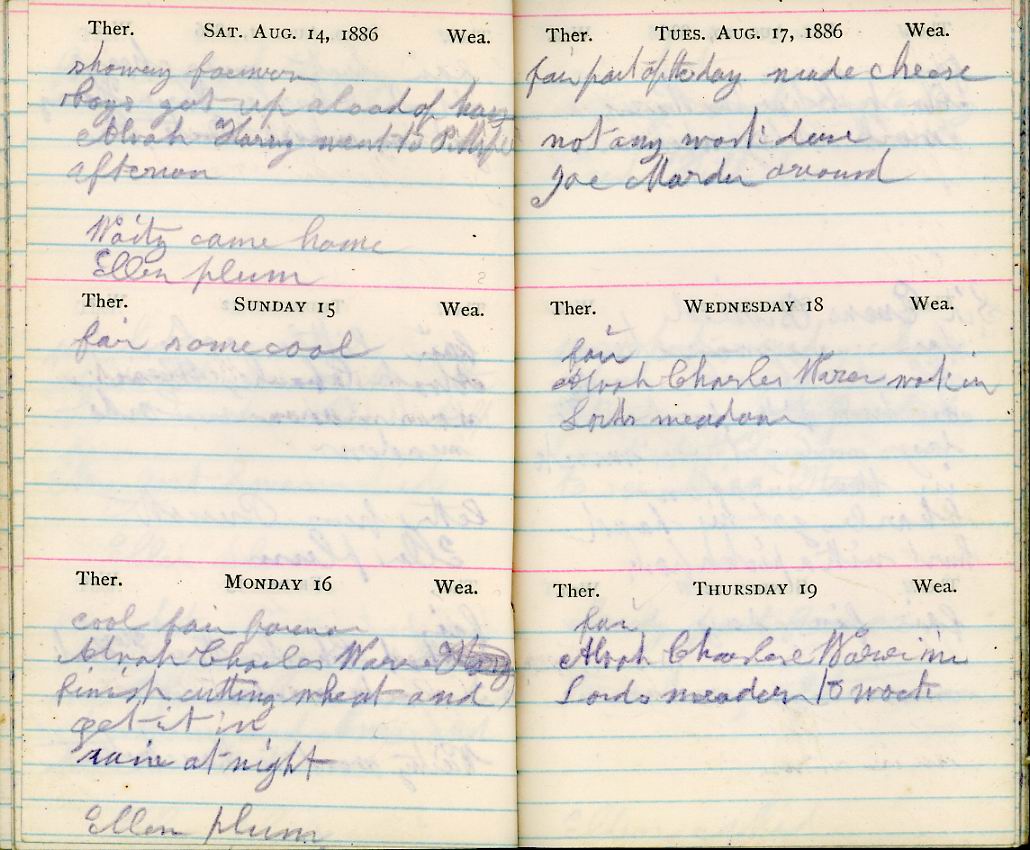 Ther. SAT. AUG. 14, 1886 Wea.
showey fornoon
boys got up a load of hay
Alvah Harry went to
afternon
Waity came home
Ellen plum
Ther. SUNDAY 15 Wea.
fair some cool
Ther. MONDAY 16 Wea.
cool fair fornon
Alvah Charles Ware
finish cutting wheat and
get it in
raine at night
Ellen plum
Ther. TUES. AUG. 17, 1886 Wea.
fair part of the day made cheese
not any work done
Joe Marder around
Ther. WEDNESDAY 18 Wea.
fair
Alvah Charles Ware work in
Lords meadow
Ther. THURSDAY 19 Wea.
fair
Alvah Charles Ware in
Lords meader to work